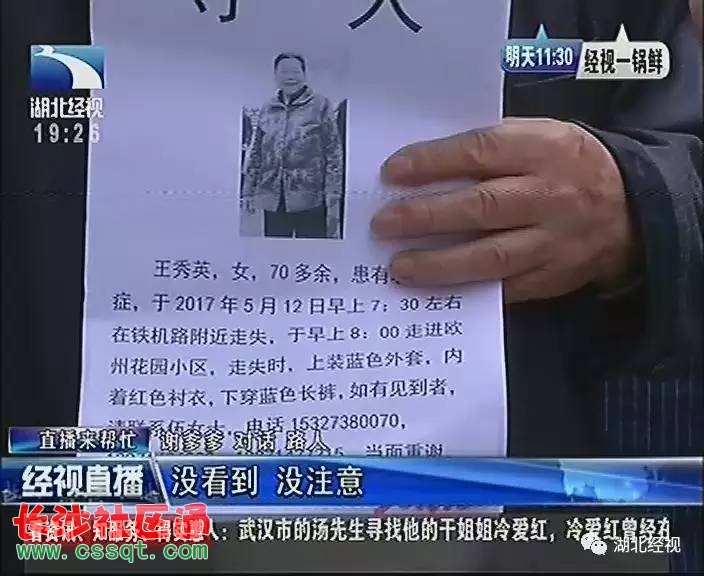 寻 人
明天11:30
经视一锅鲜
湖北经视
19:26
王秀英，女，70多余，患有
症，于2017年5月12日早上7：30左右
在铁机路附近走失，于早上8：00走进欧
州花园小区，走失时，上装蓝色外套，内
着红色衬衣，下穿蓝色长裤，如有见到者，
请联系伍女士，电话15327380070，
当面重谢
直播宋帮忙
谢多多 对话 路人
经视直播
没看到 没注意
长沙社区通
www.cssqt.com
人：武汉市的汤先生寻找他的干姐姐冷爱红，冷爱红曾经在
湖北经视